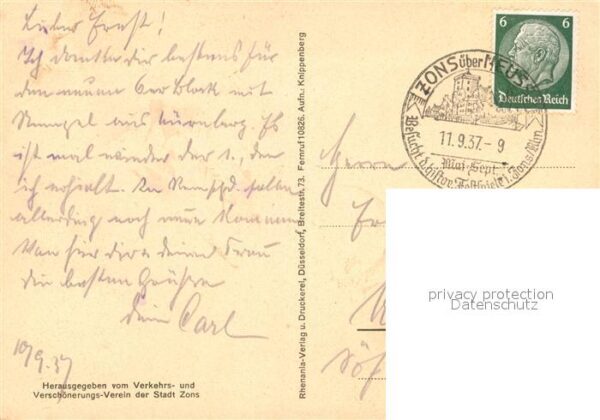 Lieber Ernst!
Ich danke dir bestens für
den neuen 6er Block mit
Stempel aus Nürnberg. Es
ist mal wieder der 1., den
ich erhielt. In
allerdings noch neue kommen
Von hier dir & deiner Frau
die besten Grüsse
dein Carl
10/9.37
Herausgegeben vom Verkehrs- und
Verschönerungs-Verein der Stadt Zons
Rhenania-Verlag u. Druckerei, Düsseldorf, Breitestr. 73. Fernruf 10826. Aufn.: Knippenberg
6 6
Deutsches Reich
ZONS über NEUSS
11.9.37.-9
Mai-Sept.
Besucht d. histor. Festspiele i. Zons/Rhn.
Herrn
privacy protection
Datenschutz